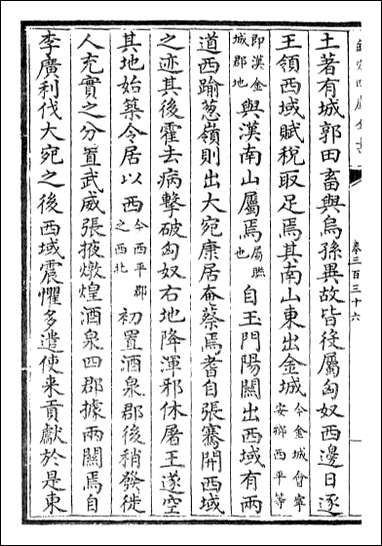 欽定四庫全書
卷三百三十六
土著有城郭田畜與烏孫異故皆役屬匈奴西邊日逐
王領西域賦稅取足焉其南山東出金城今金城會寧安鄉西平等
即漢金城郡地與漢南山屬焉屬聯也自玉門陽關出西域有兩
道西踰蔥嶺則出大宛康居奄蔡焉耆自張騫開西域
之迹其後霍去病擊破匈奴右地降渾邪休屠王遂空
其地始築令居以西今西平郡之西北初置酒泉郡後稍發徙
人充實之分置武威張掖燉煌酒泉四郡據兩關焉自
李廣利伐大宛之後西域震懼多遣使來貢獻於是東